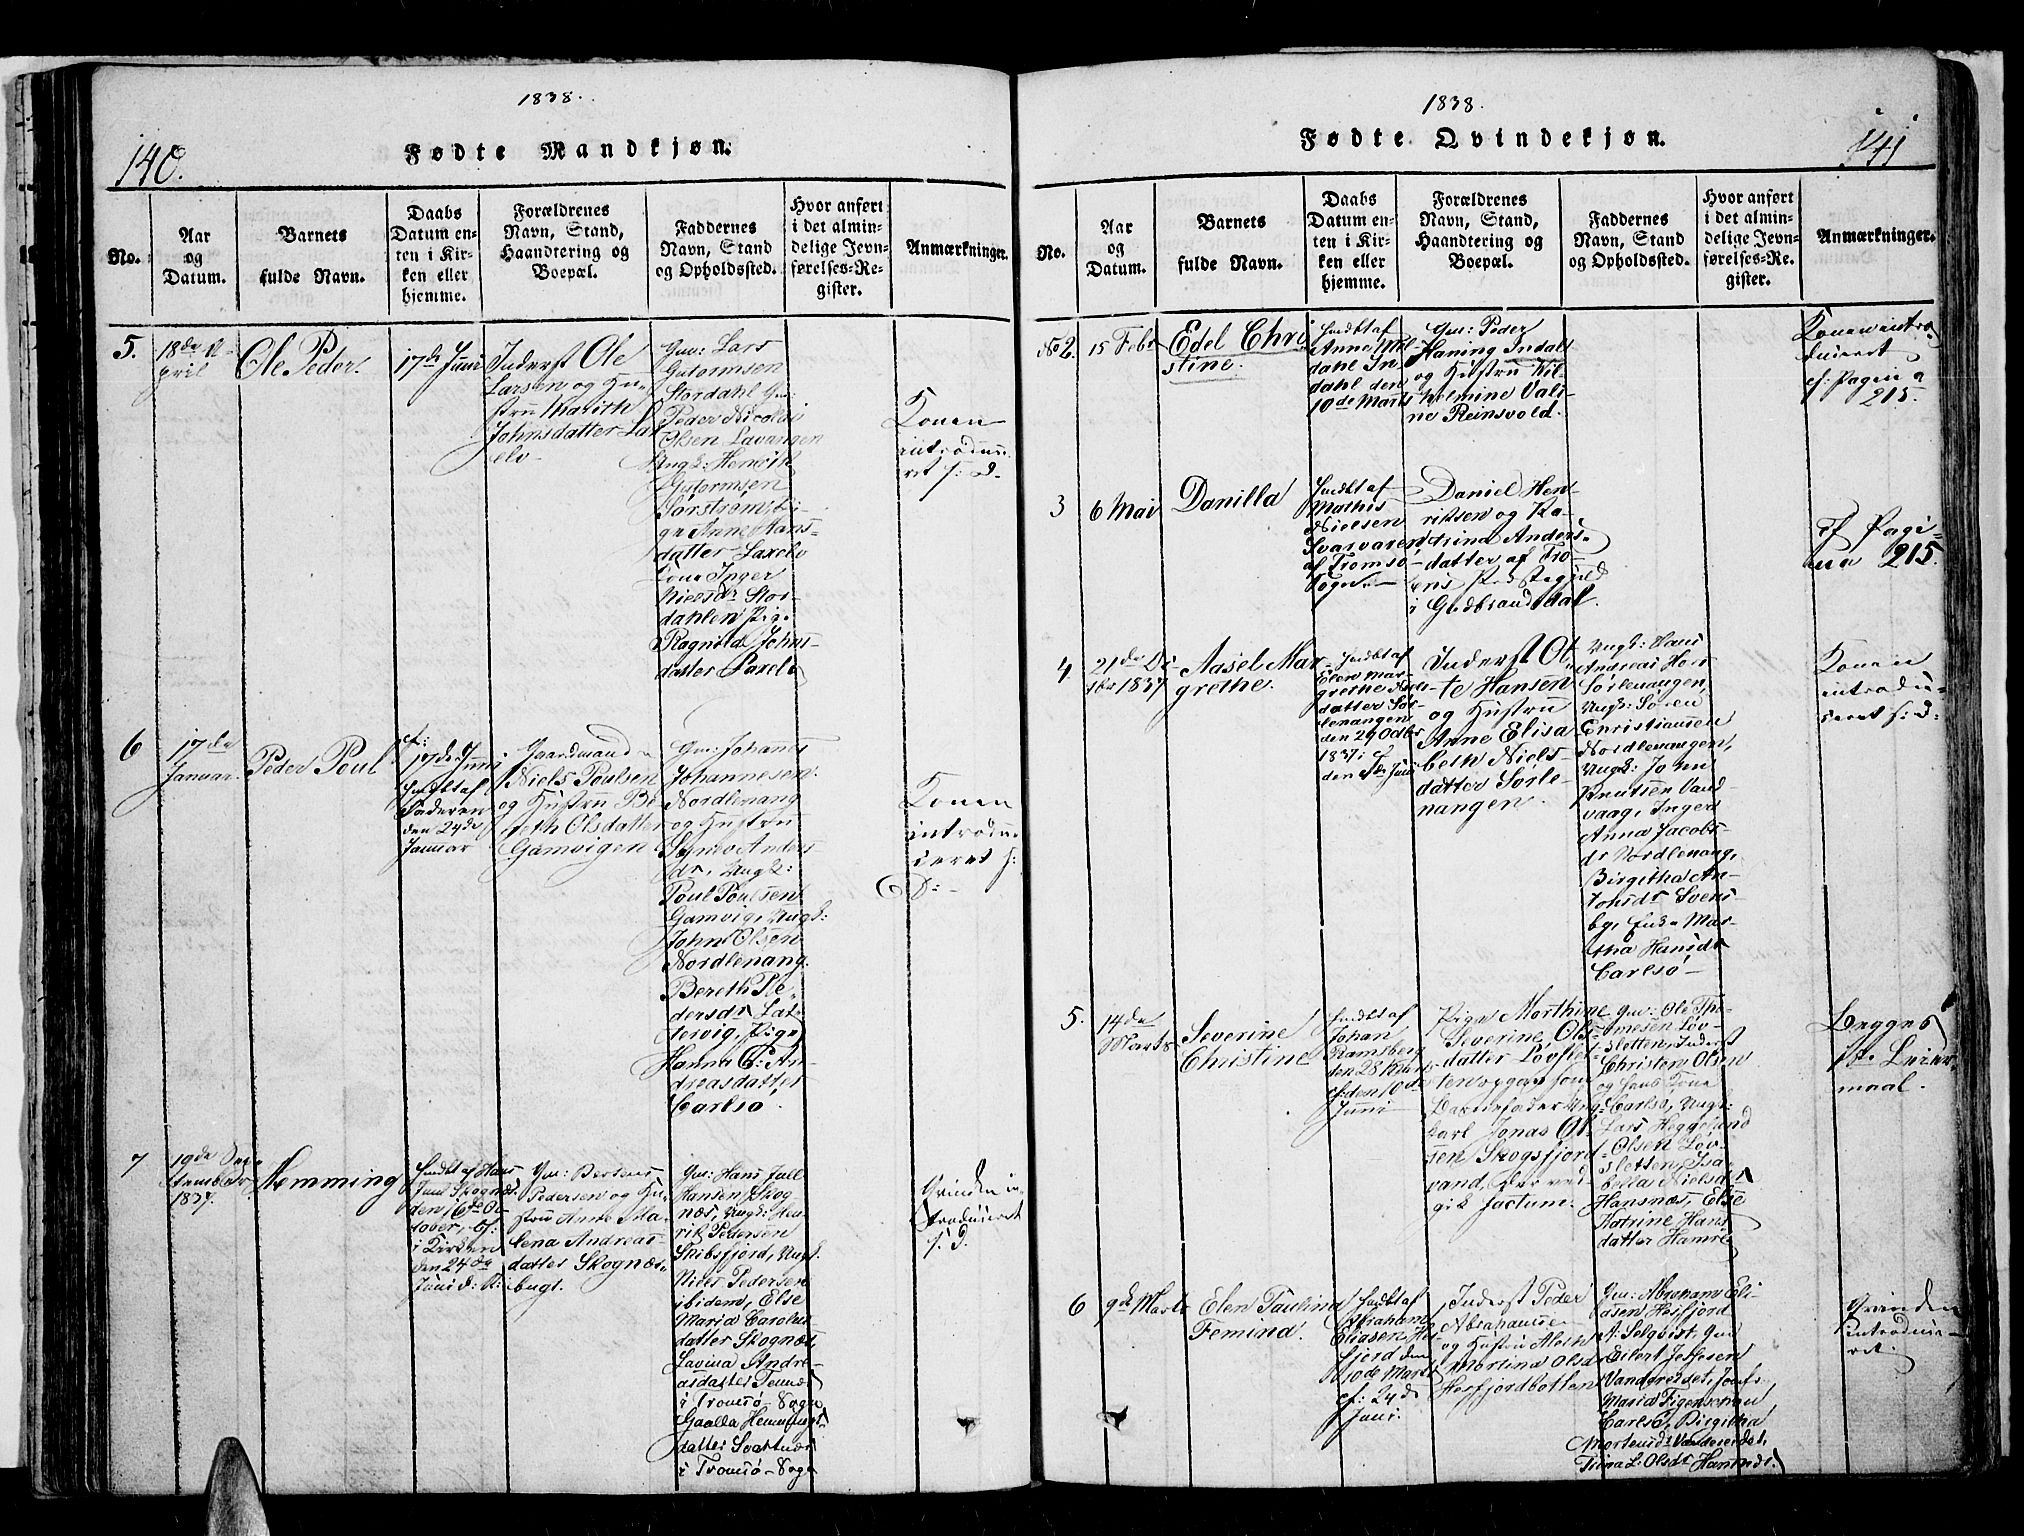 1838.
140.
Fødte Mandkjøn.
No.
Aar
og
Datum.
Barnets
fulde Navn.
Daabs
Datum en-
ten i Kir-
ken eller
hjemme.
Forældrenes
Navn, Stand,
Haandtering og
Boepæl.
Faddernes
Navn, Stand
og Opholdssted.
Hvor anført
i det almin-
delige Jevn-
førelses-Re-
gister.
Anmærkninger.
5.
18de A-
pril
Ole Peder.
17de Juni
Inderst Ole
Larsen og Hu-
stru Marith
Johnsdatter Lax
elv
Gm: Lars
Gutormsen
Stordahl Gm:
Peder Nicolai
Olsen Lavangen
Ungk: Henrik
Gutormsen
Sørstrøm, Pi-
ge Anne Hans-
datter Laxelv
Kone Inger
Nielsdr Stor-
dahlen Pige
Ragnild Johns-
datter Laxelv
Konen
introduce-
ret s: D.
6
17de
Januar.
Peder Poul
cf:
17de Juni
hiemdøbt af
Faderen
den 24de
Januar
Gaardmand
Niels Poulsen
og Hustru Be-
reth Olsdatter
Gamvigen
Gm: Johannes
Johannesen
Nordlenang
og Hustru
Synov Anders
dr, Ungk:
Poul Poulsen
Gamvig, Ungk:
John Olsen
Nordlenang.
Bereth Pe-
dersdr Lat-
tervig, Pige
Hanna C: An-
dreasdatter
Carlsø
Konen
introdu-
ceret s:
D:
7
19de Sep-
tember
1837.
Hemming
hiemdøbt af Hans
Juul Skognæs
den 16de Oc-
tober, cf:
i Kirken
den 24de
Juni d: A:
Gm: Bertens
Pedersen og Hu-
stru Anne Ma-
lena Andreas-
datter Skognæs-
bugt.
Gm: Hans Juul
Hansen Skog
næs, Ungk: Hen-
rik Pedersen
Skibsfjord, Ungk:
Niels Pedersen
ibidem, Else
Maria Carolus-
datter Skognæs,
Lavina Andre-
asdatter Tennes
i Tromsø-Sogn
Gaalla Hemmings
datter Svartnæs
i Tromsø-Sogn
Qvinden in-
troduceret
s. D.
1838.
141
Fødte Qvindekjøn.
No.
Aar
og
Datum.
Barnets
fulde Navn.
Daabs
Datum en-
ten i Kir-
ken eller
hjemme.
Forældrenes
Navn, Stand,
Haandtering og
Boepæl.
Faddernes
Navn, Stand
og Opholdssted.
Hvor anført
i det almin-
delige Jevn-
førelses-Re-
gister.
Anmærkninger.
No 2.
15 Febr
Edel Chri
stine.
hiemdøbt af
Anne Mel-
dahl In-
dahl den
10de Marts
Gm: Peder
Haning Indal
og Hustru Vil-
helmine Vali-
ne Reinsvold.
Konen intro-
duceret
cf: Pagina
215.
3
6 Mai
Danilla
hiemdøbt af
Mathis
Nielsen
Svarvaren
af Tromsø-
Sogn.
Daniel Hen-
riksen og Ka-
trina Anders-
datter af Fro-
ens Præstegield
i Gudbrandsdal.
cf Pagi-
na 215.
4
21de Oc-
tbr 1837
Aasel Mar-
grethe.
hiemdøbt af
Elen Mar-
grethe Niels-
datter Sør-
lenangen
den 29 Octbr
1837; cf
den 1te Juni
Inderst Ol-
le Hansen
og Hustru
Anne Elisa
beth Niels-
datter Sørle-
nangen.
Ungk: Hans
Andreas Hans
Sørlenangen,
Ungk: Søren
Christiansen
Nordlenangen,
Ungk: John
Knutsen Vand-
vaag, Inger
Anna Jacobs-
dr Nordlenang,
Birgitha An-
tonsdr Svens-
by, Enke Mar-
tha Hansdr
Carlsø
Konen
introdu-
ceret s: D:
5.
14de
Marts
Severine
Christine
hiemdøbt af
Johan
Ramsberg
den 28 Marts
cf: den 10de
Juni
Pige Morthine
Severine Ols-
datter Løvslet-
ten opgav som
Barnefader Ung-
karl Jonas Ol-
sen Skogsfjord-
vand, der ved-
gik factum.
Gm: Ole Tho-
mesen Løv-
sletten, Inderst
Christen Olsen
og hans Kone
Carlsø, Ungk:
Lars Heggelund
Olsen Løv-
sletten, Isa-
bella Nielsdr
Hansnæs, Else
Katrine Hans
datter Hamre
Begges
1te Leier-
maal.
6
9de Marts
Elen Paulina
Femina.
hiemdøbt af
Abraham
Eliasen Hes-
fjord den
10de Marts
cf: 24de
Juni.
Inderst Peder
Abrahamsen
og Hustru Aleth
Martina Olsdr
Hesfjordbotten
Gm: Abraham Eli-
asen Hesfjord
A: Selqvist, Gm:
Eilert Jessesen
Vandereidet, Jomfr.
Maria Figenschou
Carlsø, Birgitha
Mortensdr Vandereidet,
Trina L: Olsdr Hansnæs.
Qvinden
introduce-
ret.